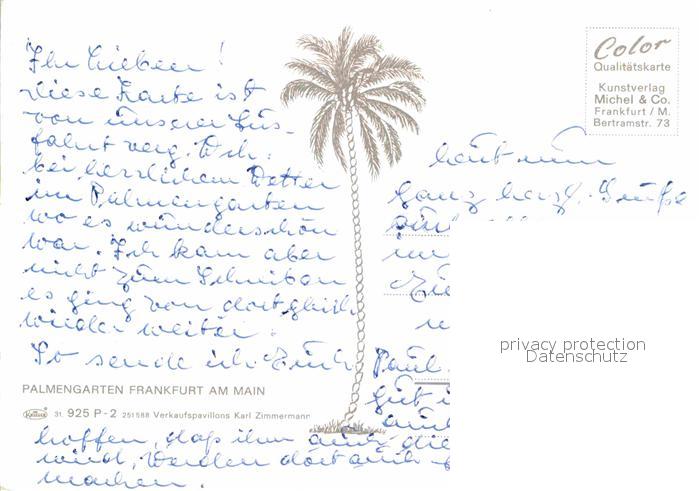 Ihr Lieben!
Diese Karte ist
von unserer Aus-
fahrt verg. Wch.
bei herrlichem Wetter
im Palmengarten
wo es wunderschön
war. Ich kam aber
nicht zum Schreiben
es ging von dort gleich
wieder weiter.
So sende ich Euch
heut nun
ganz herzl. Grüße
Paul
gut
hoffen, daß ihm auch die
wird, werden dort auch
machen.
PALMENGARTEN FRANKFURT AM MAIN
31. 925 P-2 251588 Verkaufspavillons Karl Zimmermann
Color
Qualitätskarte
Kunstverlag
Michel & Co.
Frankfurt / M.
Bertramstr. 73
privacy protection
Datenschutz